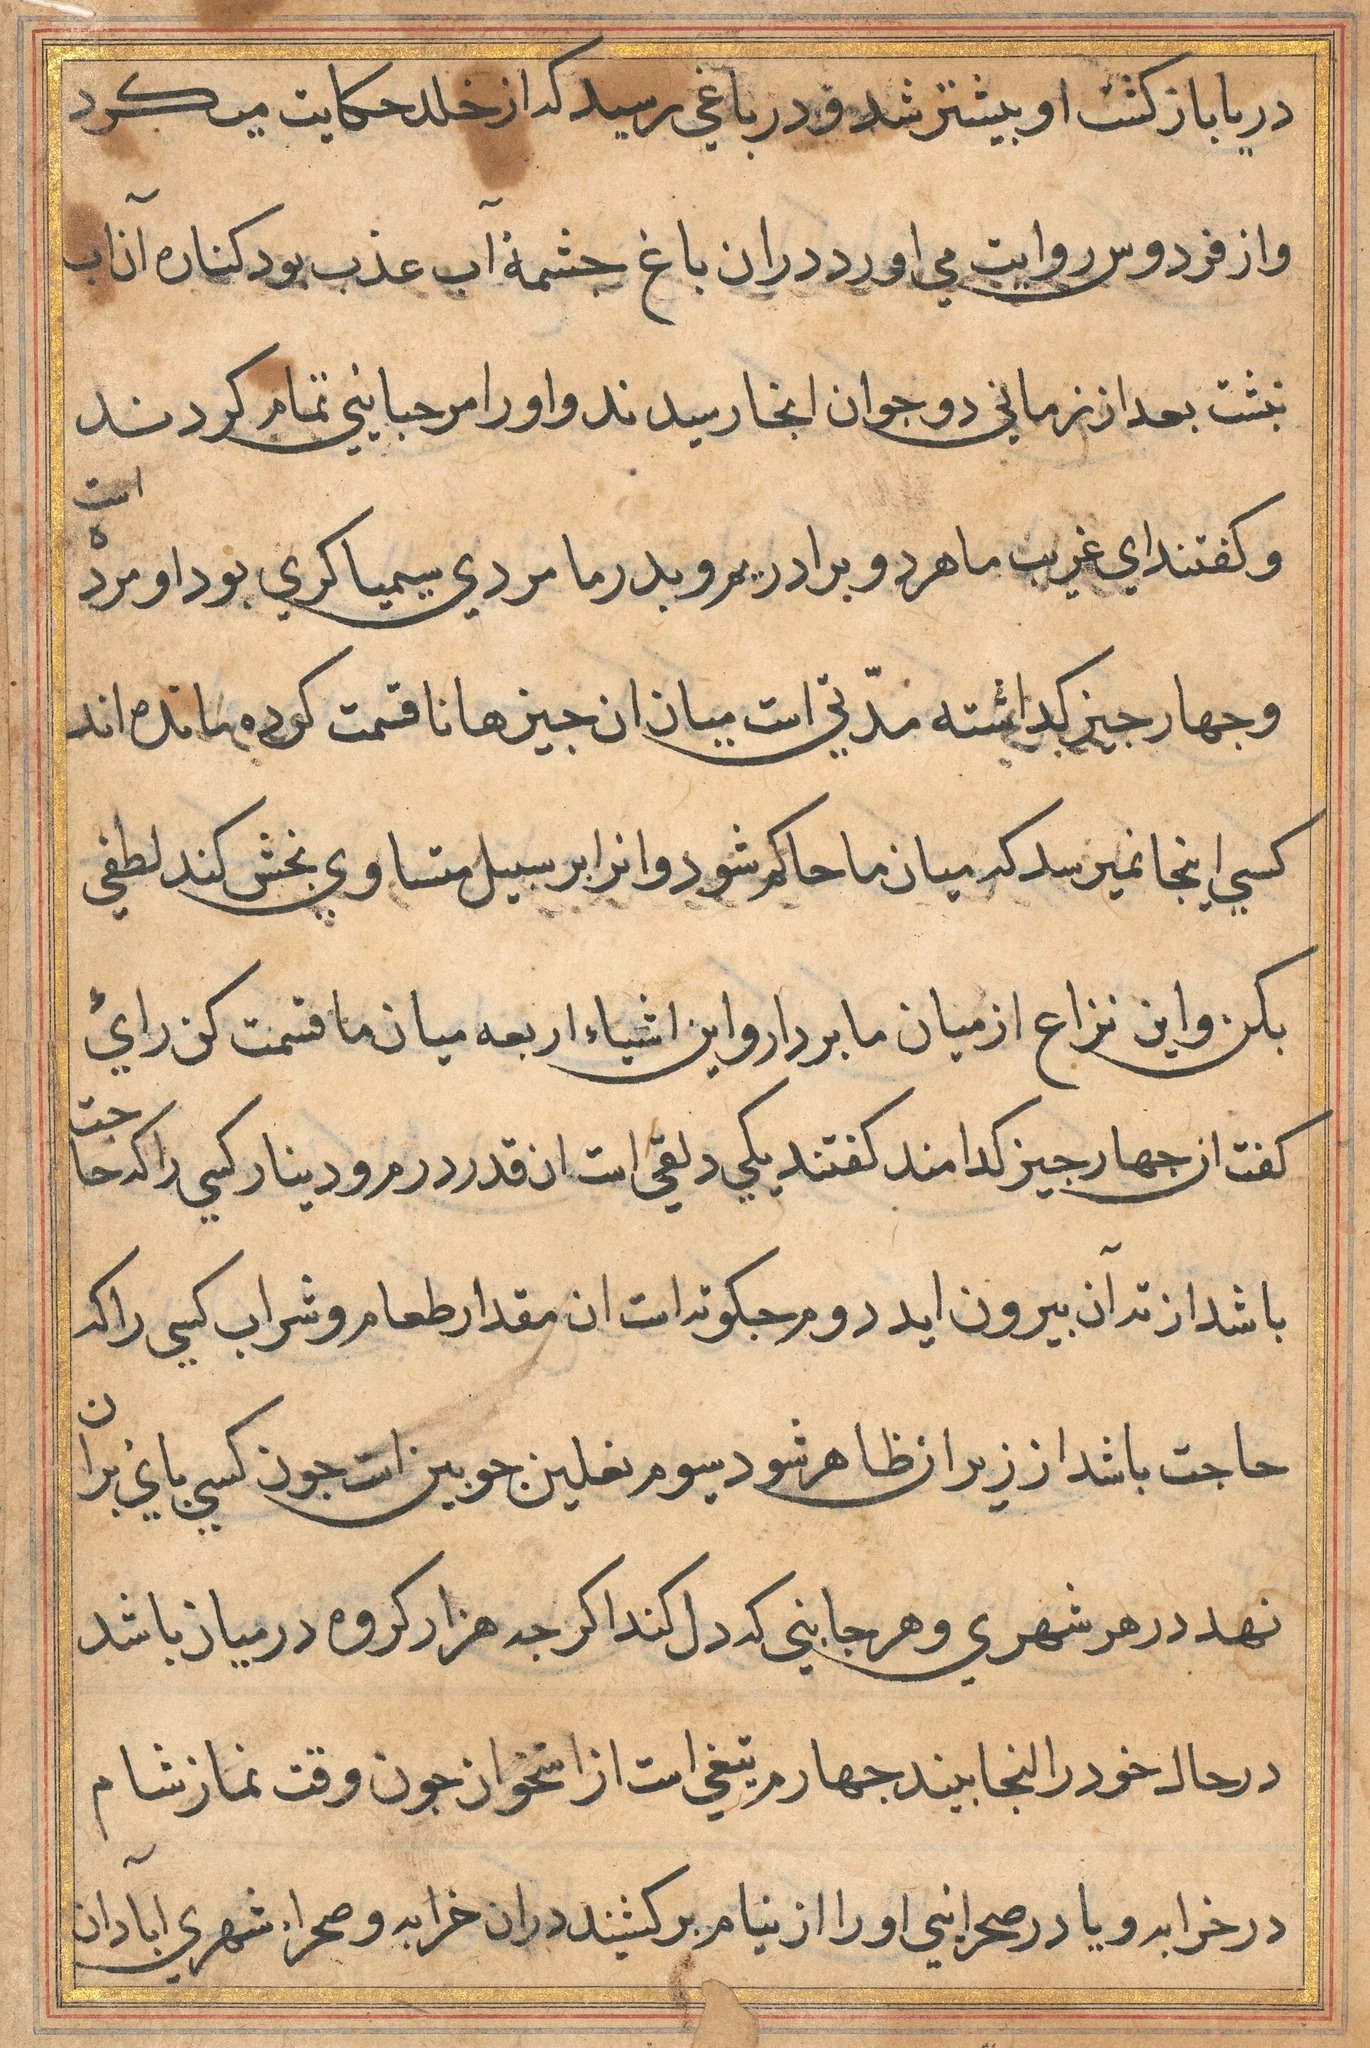 دریا بازکشت او بیشتر شد و در باغی رسید که از خلد حکایت میکرد
و از فردوس روایت می اورد دران باغ چشمهٔ آب عذب بود کناره آن آب
نشت بعد از زمانی دو جوان انجا رسیدند و او را مرحبایی تمام کردند
و کفتند ای غریب ما هر دو برادریم و بدر ما مردی سیمیاکری بود او مرده است
و جهار جیز کداشته مدّتی است میان ان جیزها نا قسمت کرده مانده اند
کسی اینجا نمیرسد که میان ما حاکم شود و انرا بر سبیل متساوی بخش کند لطفی
بکن و این نزاع از میان ما بردار و این اشیاء اربعه میان ما قسمت کن رای
کفت ان جهار جیز کدامند کفتند یکی دلقی است ان قدر درم و دینار کسی را که حاجت
باشد از ته آن بیرون اید دوم جبکوته است ان مقدار طعام و شراب کسی را که
حاجت باشد از زیر ان ظاهر شود سیوم نعلین جوبین است جون کسی بای بران
نهد در هر شهری و هر جایی که دل کند اکر جه هزار کروه درمیان باشد
در حال خود را انجا بیند جهارم تیغی است از استخوان جون وقت نماز شام
در خرابه و یا در صحرایی او را از نیام برکشند دران خرابه و صحراء شهری آبادان